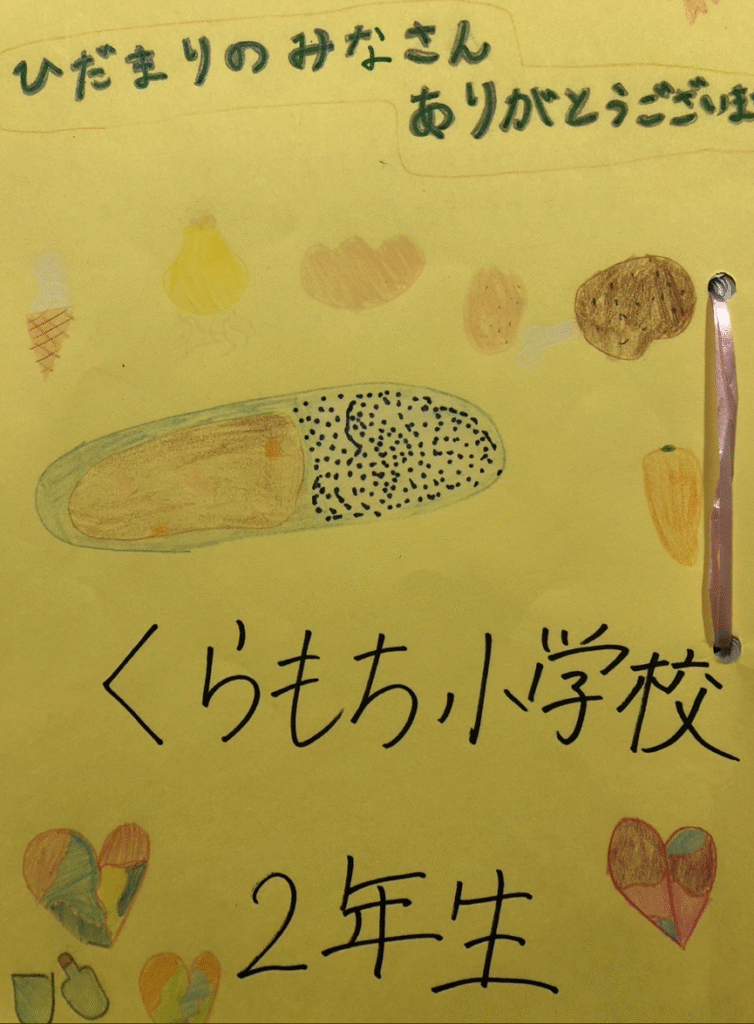 ひだまりのみなさん
ありがとうございま
くらもち小学校
2年生